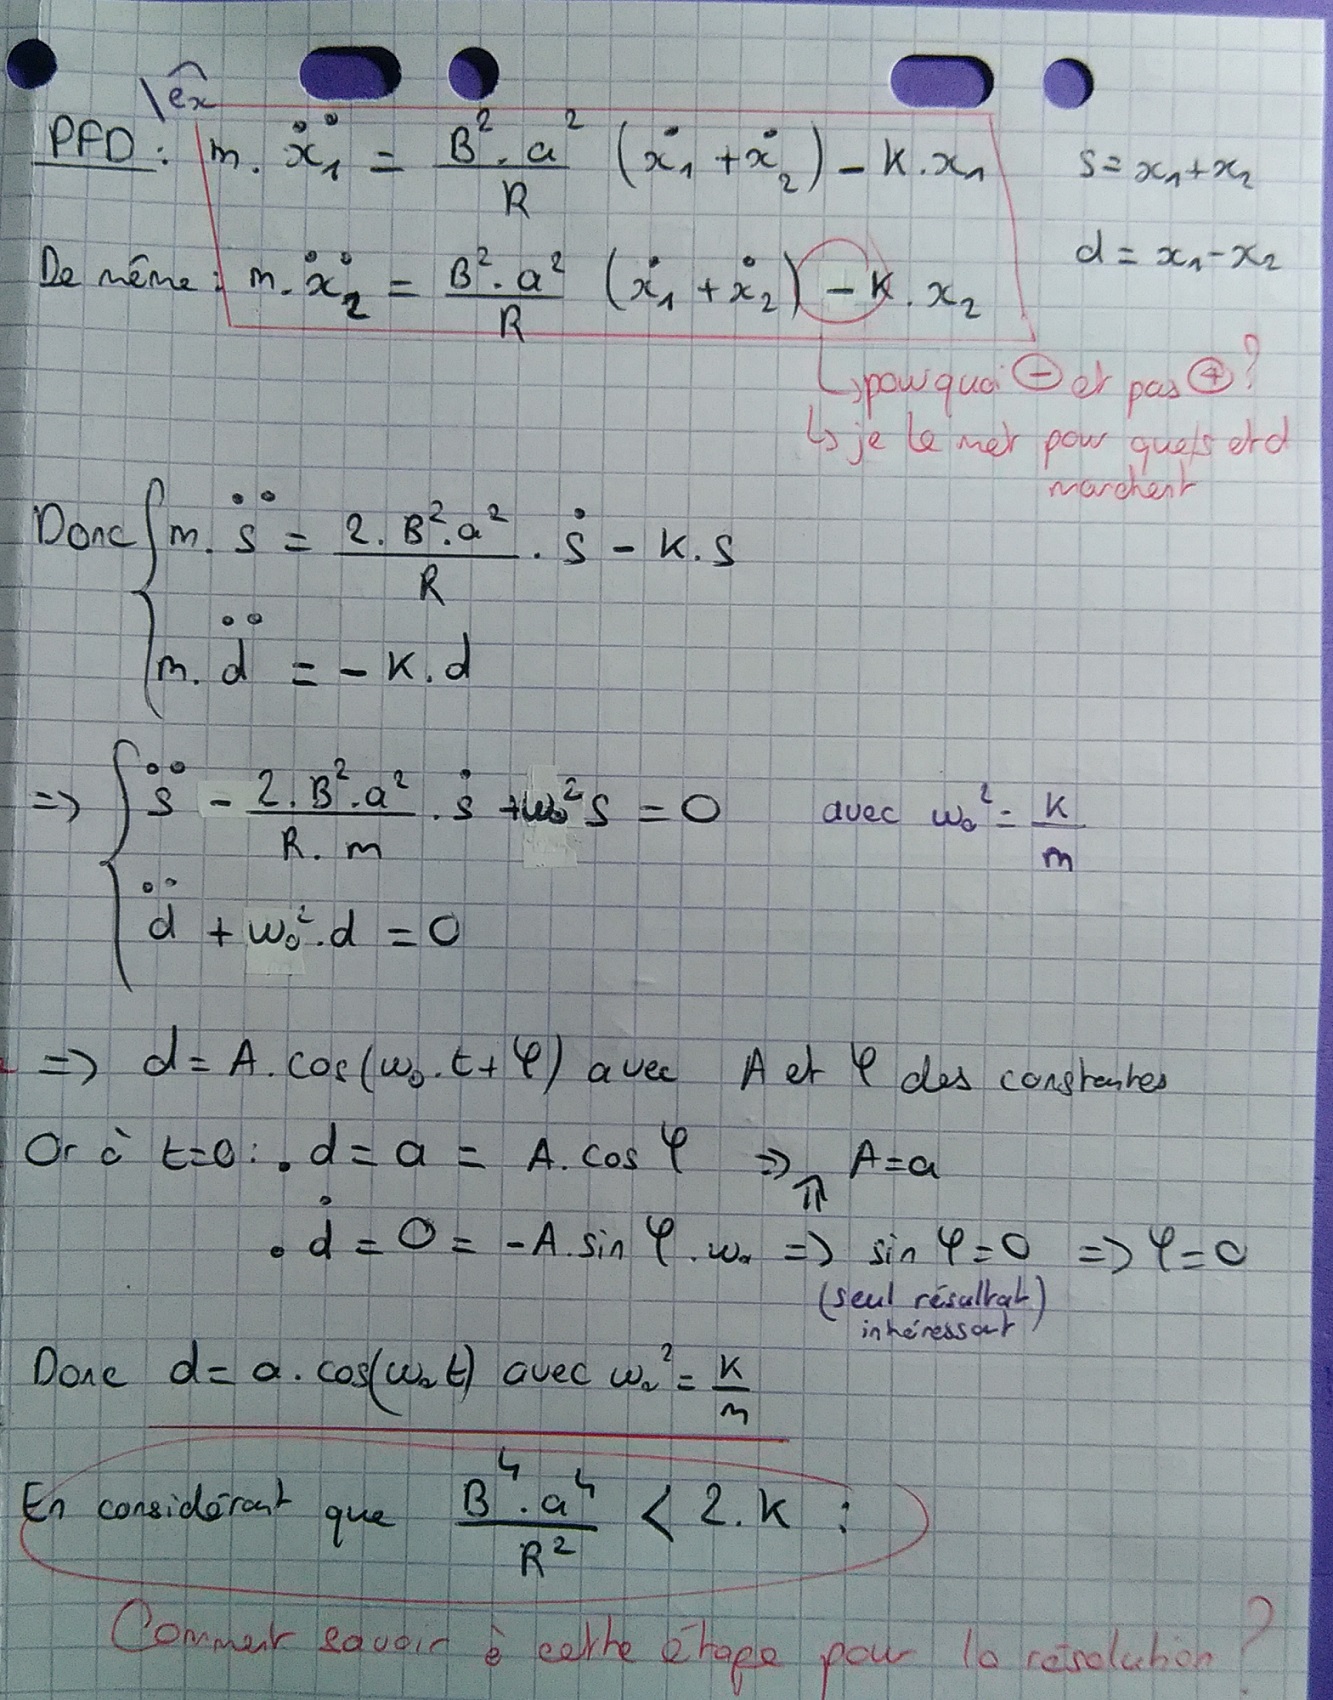 \e͡x
PFD : m. ẍ₁ = B². a² / R (ẋ₁ + ẋ₂) - K. x₁ s = x₁ + x₂
De même : m. ẍ₂ = B². a² / R (ẋ₁ + ẋ₂) - K. x₂ d = x₁ - x₂
↳ pourquoi ⊖ et pas ⊕ ?
↳ je le met pour que s et d
marchent
Donc { m. s̈ = 2. B². a² / R . ṡ - K. s
m. d̈ = - K. d
=> { s̈ - 2. B². a² / R. m . ṡ + ω₀² s = 0 avec ω₀² = K / m
d̈ + ω₀². d = 0
=> d = A. cos(ω₀. t + φ) avec A et φ des constantes
Or à t=0 : . d = a = A. cos φ => A = a
⇑
. ḋ = 0 = - A. sin φ. ω₀ => sin φ = 0 => φ = 0
(seul résultat
intéressant)
Donc d = a. cos(ω₀ t) avec ω₀² = K / m
En considérant que B⁴. a⁴ / R² < 2. K :
Comment savoir à cette étape pour la résolution ?